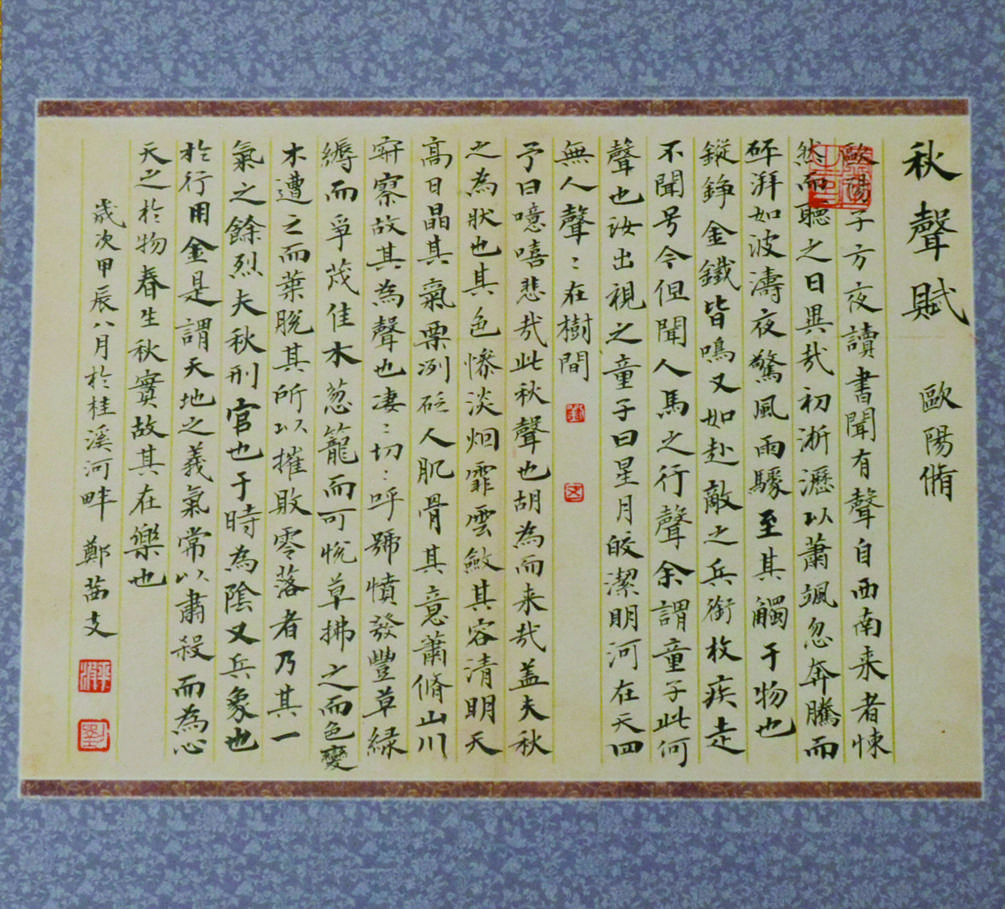 秋聲賦 歐陽脩
歐陽子方夜讀書聞有聲自西南来者悚
然而聽之曰異哉初淅瀝以蕭颯忽奔騰而
砰湃如波濤夜驚風雨驟至其觸于物也
鏦錚金鐵皆鳴又如赴敵之兵銜枚疾走
不聞号令但聞人馬之行聲余謂童子此何
聲也汝出視之童子曰星月皎潔明河在天四
無人聲:在樹間
予曰噫嘻悲哉此秋聲也胡為而来哉盖夫秋
之為狀也其色慘淡烟霏雲斂其容清明天
高日晶其氣栗冽砭人肌骨其意蕭條山川
寂寥故其為聲也凄:切:呼號憤發豐草綠
縟而爭茂佳木葱籠而可悅草拂之而色變
木遭之而葉脫其所以摧敗零落者乃其一
氣之餘烈夫秋刑官也于時為陰又兵象也
於行用金是謂天地之義氣常以肅殺而為心
天之於物春生秋實故其在樂也
歲次甲辰八月於桂溪河畔 鄭